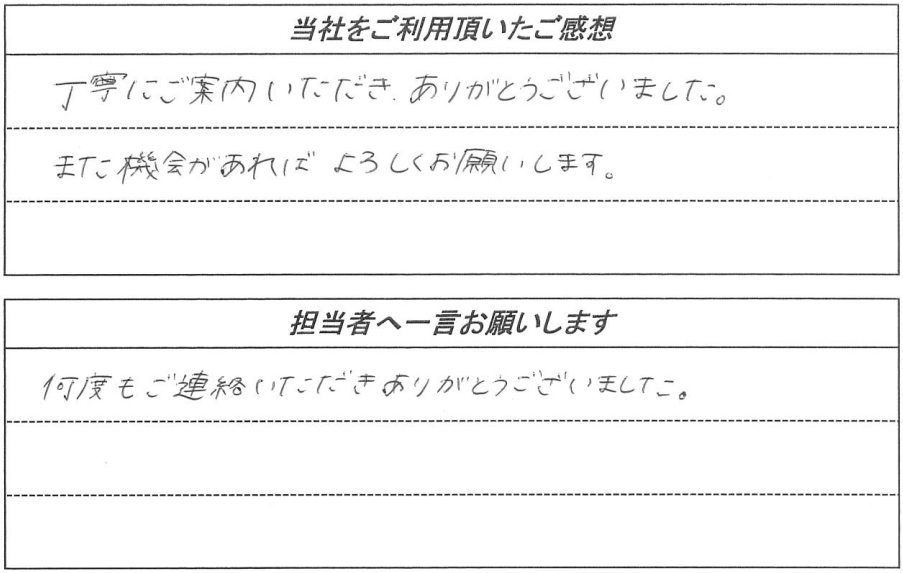 当社をご利用頂いたご感想
丁寧にご案内いただき、ありがとうございました。
また機会があれば よろしくお願いします。
担当者へ一言お願いします
何度もご連絡いただきありがとうございました。